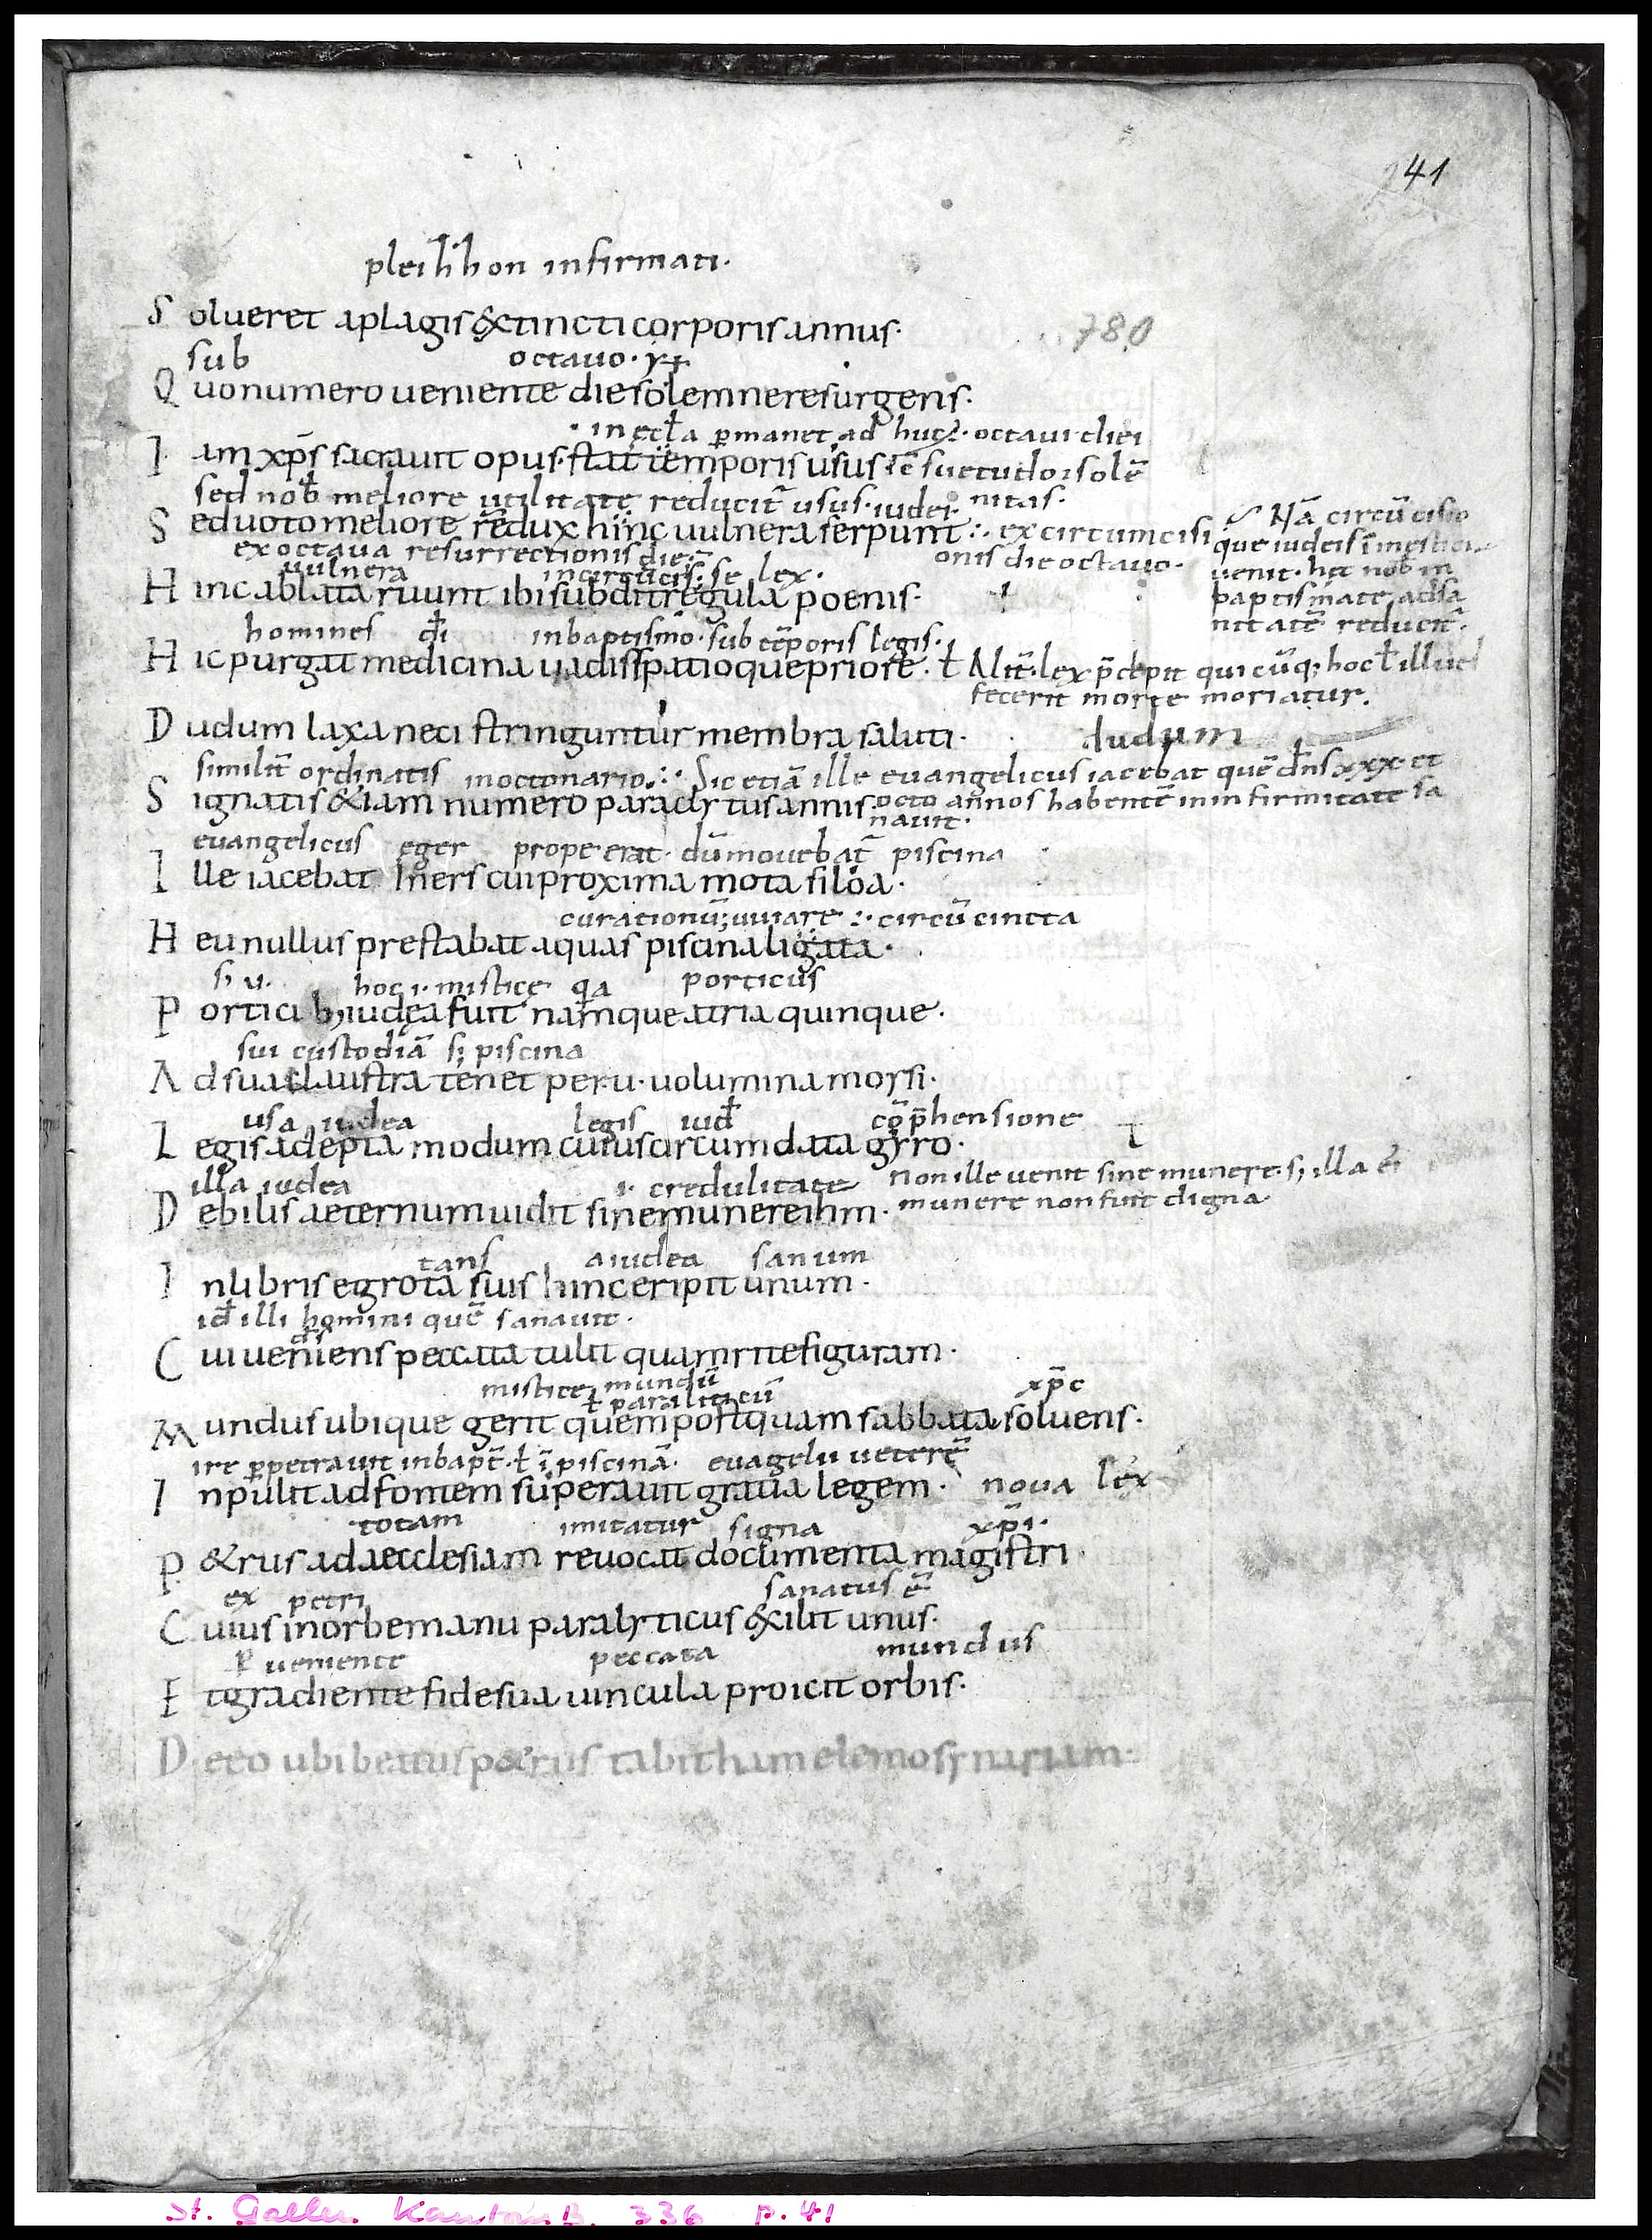 41
pleihhon infirmati.
S olueret aplagis &xtincti corporis annus.
780
sub octauo.
Q uo numero ueniente die solemne resurgens.
in ęccła ꝑmanet ad huc. octaui diei
I am xp̄s sacrauit opus. stat temporis usus sē suetudo ł solē
nitas.
sed nob̄ meliore utilitate reducit̄ usus. iudei
S ed uoto meliore redux hinc uulnera serpunt ex circumcisi
onis die octauo.
Nā circū cisio
que iudeis ī mesticia
uenit. hec nob̄ in
baptismate ad sa
nitatē reducit̄.
ex octaua resurrectionis die
uulnera in circūcis. se lex.
H inc ablata ruunt ibi subdit regula poenis.
homines dī in baptismo. sub tēporis legis.
H ic purgat medicina uadis spatioque priore. ł Alit̄. lex p̄cepit qui cūq; hoc ł illud
fecerit morte moriatur.
D udum laxa neci stringuntur membra saluti. dudum
similit̄ ordinatis in octonario. Sic etiā ille euangelicus iacebat quē dn̄s xxx et
S ignatis &iam numero paralytus annis. octo annos habentē in infirmitate sa
nauit.
euangelicus eger prope erat. dū mouebat̄ piscina
I lle iacebat iners cui proxima mota siloa.
curationū; iuuare circū cincta
H eu nullus prestabat aquas piscina ligata.
s; u. hoc .i. mistice qa porticus
P ortici b; iudęa fuit namque atria quinque.
sui custodiā s; piscina
A d sua claustra tenet per .u. uolumina moysi.
usa iudea legis iud̄ cōp̄hensione
L egis adepta modum cuius circumdata gyro.
illa iudea .i. credulitate Non ille uenit sine munere. s; illa ei
D ebilis aeternum uidit sine munere ihm. munere non fuit digna.
tans a iudea sanum
I nlibris egrota suis hinc eripit unum.
id ł illi homini quē sanauit.
C ui ueniens peccata tulit quam rite figuram.
mistice mundū xp̄c
ł paraliticū
M undus ubique gerit quem postquam sabbata soluens.
ire ꝑpetrauit in bapt̄. ł ī piscinā. euagelii ueterē
I npulit ad fontem superauit gratia legem. noua lex
totam imitatur signa xp̄i.
P &rus ad aecclesiam reuocat documenta magistri.
ex petri sanatus ē
C uius in orbe manu paralyticus &xilit unus.
ꝑ ueniente peccata mundus
E tgradiente fide sua uincula proicit orbis.
D e eo ubi beatus p&rus tabitham elemosynariam.
St. Gallen Kantonsb. 336 p. 41